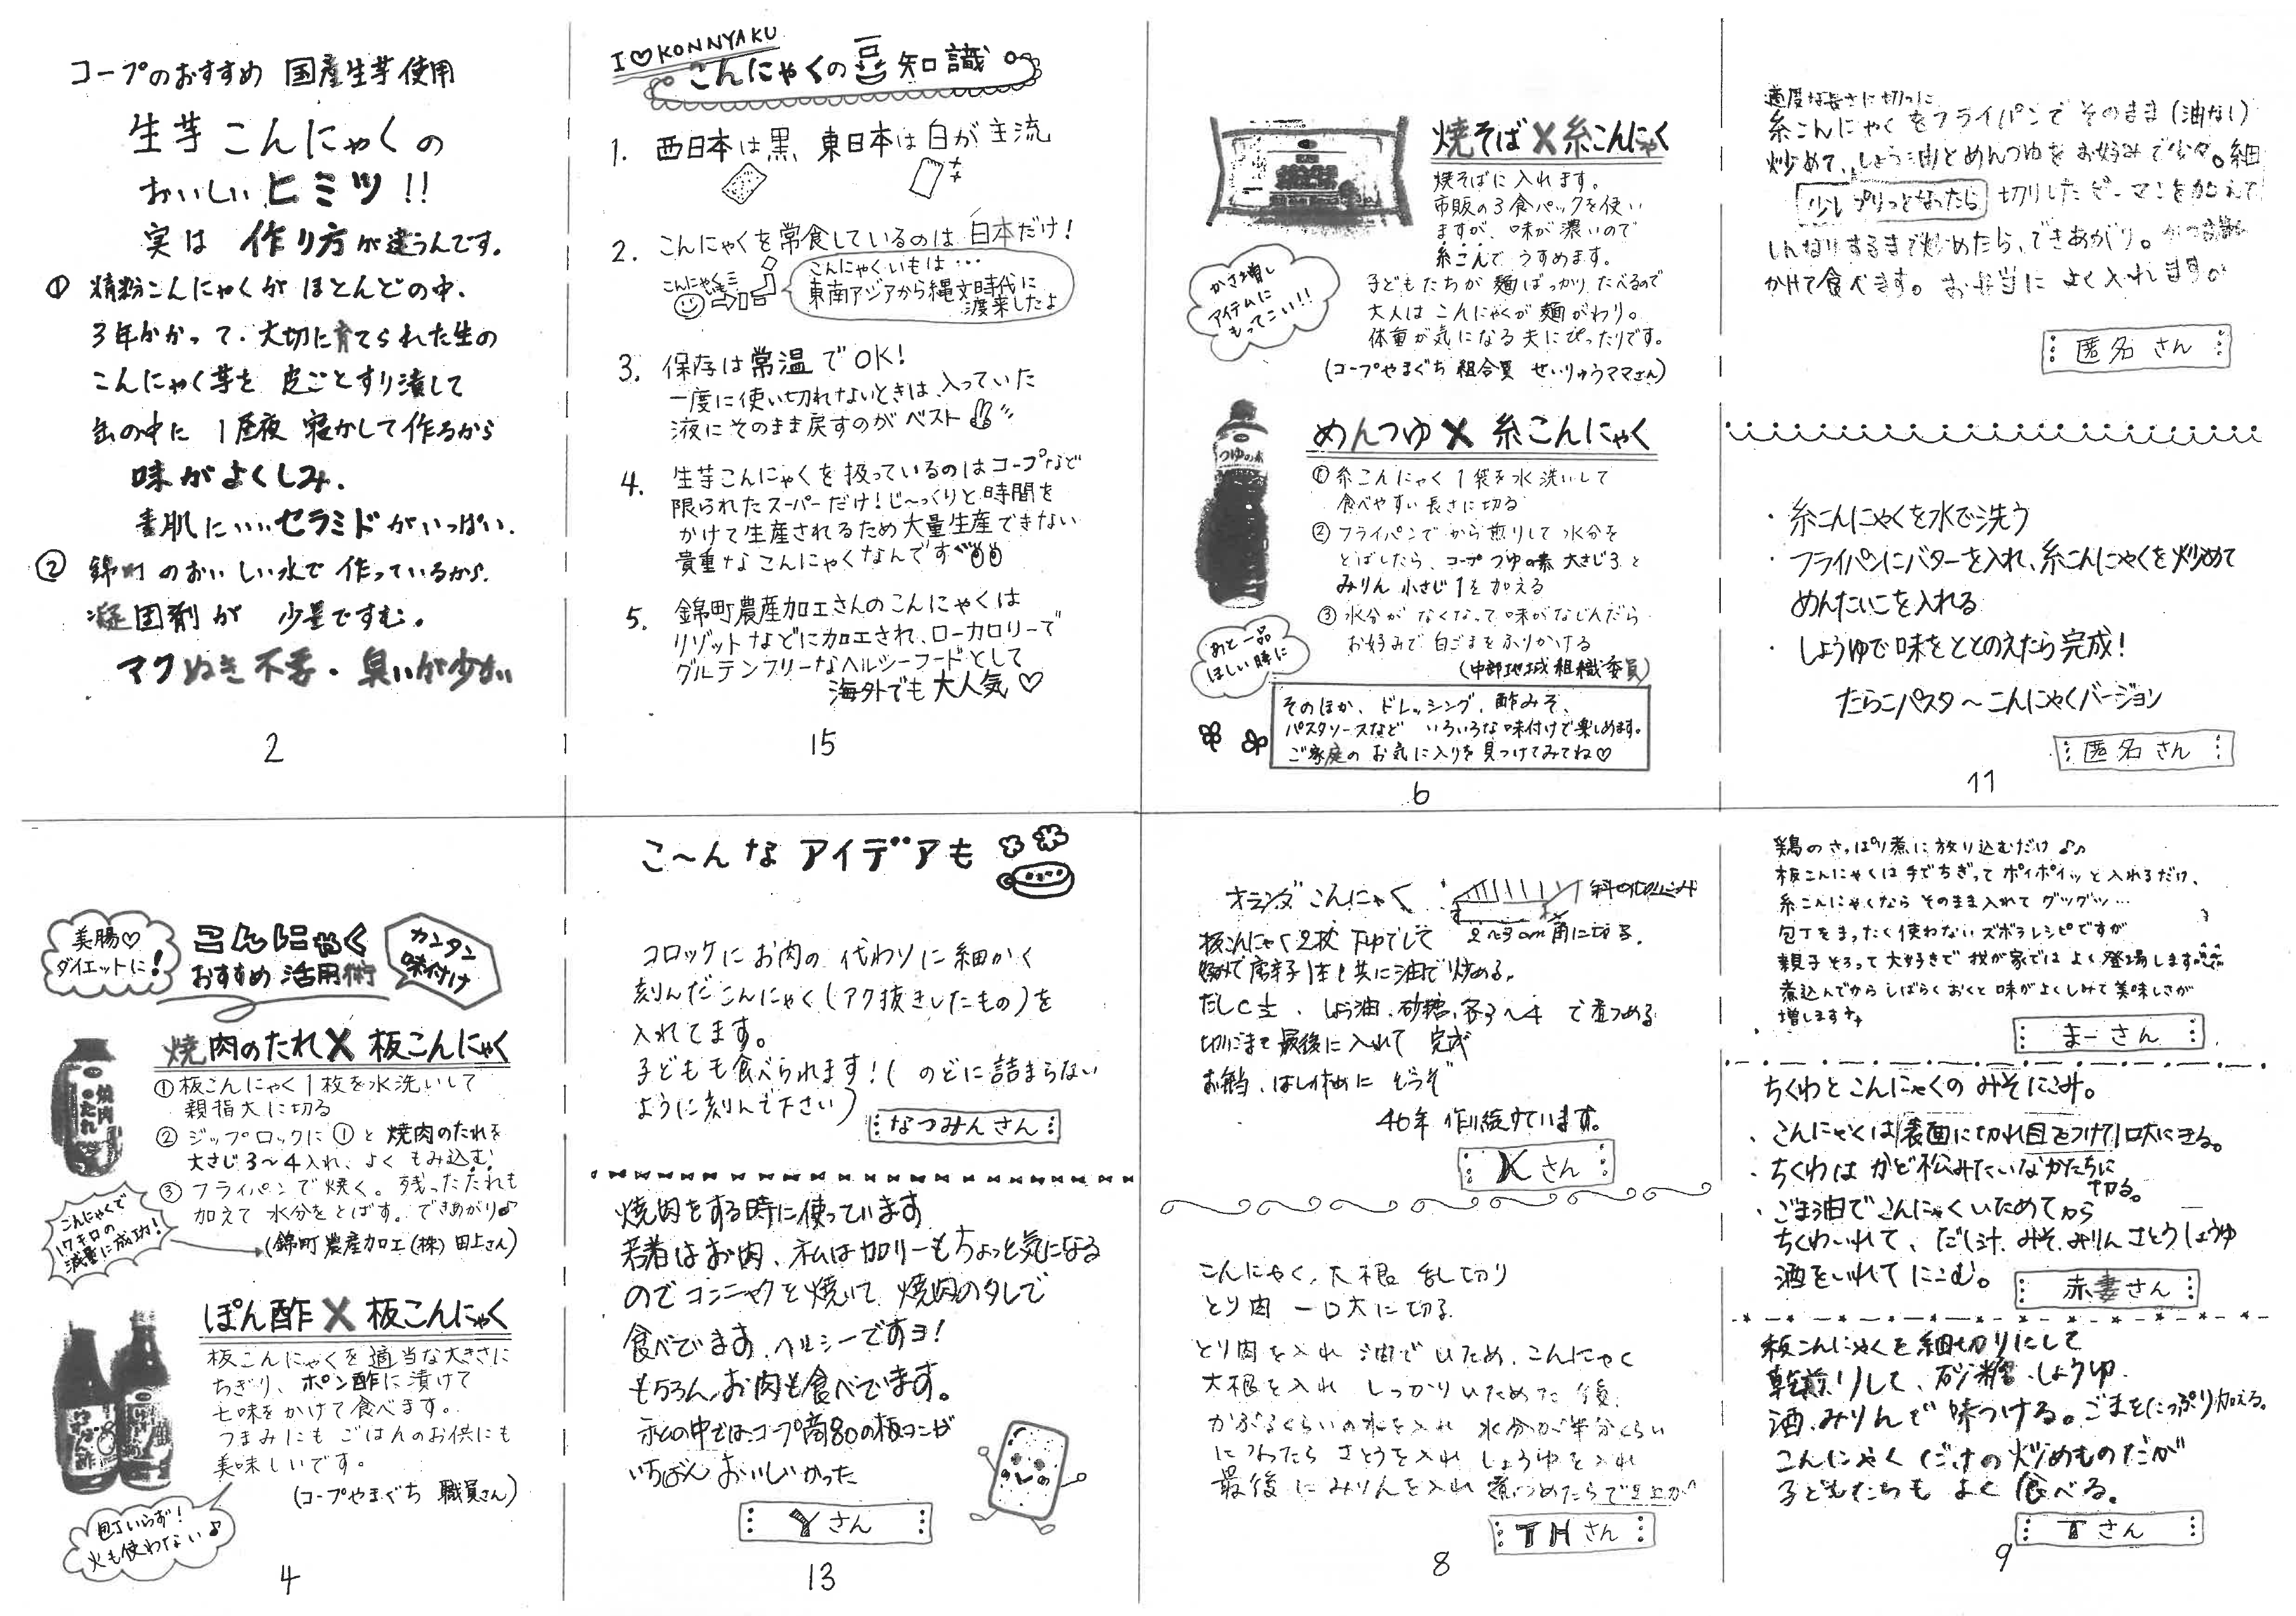 コープのおすすめ 国産生芋使用
生芋こんにゃくの
おいしいヒミツ!!
実は 作り方が違うんです。
① 精粉こんにゃくがほとんどの中、
3年かかって、大切に育てられた生の
こんにゃく芋を 皮ごとすり潰して
缶の中に 1昼夜 寝かして作るから
味がよくしみ、
素肌にいいセラミドがいっぱい。
② 錦町のおいしい水で 作っているから、
凝固剤が 少量ですむ。
アクぬき不要・臭いが少ない
2
I♡KONNYAKU
こんにゃくの豆知識
1. 西日本は黒、東日本は白が主流
2. こんにゃくを常食しているのは 日本だけ!
こんにゃくいもは…
東南アジアから縄文時代に
渡来したよ
3. 保存は常温でOK!
一度に使い切れないときは、入っていた
液にそのまま戻すのがベスト
4. 生芋こんにゃくを扱っているのはコープなど
限られたスーパーだけ!じ〜っくりと時間を
かけて生産されるため大量生産できない
貴重なこんにゃくなんです
5. 錦町農産加工さんのこんにゃくは
リゾットなどに加工され、ローカロリーで
グルテンフリーなヘルシーフードとして
海外でも大人気♡
15
焼そば×糸こんにゃく
焼そばに入れます。
市販の3食パックを使い
ますが、味が濃いので
糸こんでうすめます。
子どもたちが麺ばっかりたべるので
大人はこんにゃくが麺がわり。
体重が気になる夫にぴったりです。
(コープやまぐち 組合員 せいりゅうママさん)
かさ増し
アイテムに
もってこい!!
めんつゆ×糸こんにゃく
つゆの素
① 糸こんにゃく1袋を水洗いして
食べやすい長さに切る
② フライパンでから煎りして水分を
とばしたら、コープつゆの素 大さじ3と
みりん 小さじ1を加える
③ 水分がなくなって味がなじんだら
お好みで白ごまをふりかける
(中部地域組織委員)
あと一品
ほしい時に
そのほか、ドレッシング、酢みそ、
パスタソースなど いろいろな味付けで楽しめます。
ご家庭のお気に入りを見つけてみてね♡
6
適度な長さに切った
糸こんにゃくをフライパンでそのまま(油なし)
炒めて、しょう油とめんつゆをお好みで少々。細
少しプリっとなったら 切りしたピーマンを加えて
しんなりするまで炒めたら、できあがり。
かけて食べます。お弁当によく入れます。
匿名さん
・糸こんにゃくを水で洗う
・フライパンにバターを入れ、糸こんにゃくを炒めて
めんたいこを入れる
・しょうゆで味をととのえたら完成!
たらこパスタ〜こんにゃくバージョン
匿名さん
11
美腸♡
ダイエットに!
こんにゃく
おすすめ活用術
カンタン
味付け
焼肉のたれ×板こんにゃく
焼肉のたれ
① 板こんにゃく1枚を水洗いして
親指大に切る
② ジップロックに①と焼肉のたれを
大さじ3〜4入れ、よくもみ込む
③ フライパンで焼く。残ったたれも
加えて水分をとばす。できあがり♪
(錦町農産加工(株)田上さん)
こんにゃくで
17キロの
減量に成功!
ぽん酢×板こんにゃく
板こんにゃくを適当な大きさに
ちぎり、ポン酢に漬けて
七味をかけて食べます。
つまみにもごはんのお供にも
美味しいです。
(コープやまぐち 職員さん)
包丁いらず!
火も使わない♪
4
こ〜んなアイデアも
コロッケにお肉の代わりに細かく
刻んだこんにゃく(アク抜きしたもの)を
入れてます。
子どもも食べられます!(のどに詰まらない
ように刻んで下さい)
なつみんさん
焼肉をする時に使っています
若者はお肉、私はカロリーもちょっと気になる
のでコンニャクを焼いて 焼肉のタレで
食べています、ヘルシーですヨ!
もちろんお肉も食べています。
私の中ではコープ商品の板コンが
いちばんおいしかった
Yさん
13
オランダこんにゃく
板こんにゃく2枚 下ゆでして 2〜3cm角に切る。
好みで唐辛子1本と共に油で炒める。
しょう油、砂糖、各3〜4 で煮つめる
切りごまを最後に入れて 完成
お弁当、はし休めに どうぞ
40年 作り続けています。
Kさん
こんにゃく、大根 乱切り
とり肉 一口大に切る
とり肉を入れ 油でいため、こんにゃく
大根を入れ しっかりいためた後、
かぶるくらいの水を入れ 水分が半分くらい
になったら さとうを入れ しょうゆを入れ
最後にみりんを入れ 煮つめたらでき上が
THさん
8
鶏のさっぱり煮に放り込むだけ♪♪
板こんにゃくは手でちぎってポイポイッと入れるだけ、
糸こんにゃくならそのまま入れてグツグツ…
包丁をまったく使わないズボラレシピですが
親子そろって大好きで我が家ではよく登場します。
煮込んでからしばらくおくと味がよくしみて美味しさが
増します
まーさん
ちくわとこんにゃくのみそにこみ。
・こんにゃくは表面に切れ目をつけて1口大にきる。
・ちくわはかど松みたいなかたちに
切る。
・ごま油でこんにゃくいためてから
ちくわいれて、だし汁、みそ、みりん、さとう、しょうゆ
酒をいれてにこむ。
赤妻さん
板こんにゃくを細切りにして
乾煎りして、砂糖、しょうゆ、
酒、みりんで味つける。ごまをたっぷり加える。
こんにゃくだけの炒めものだが
子どもたちもよく食べる。
Tさん
9